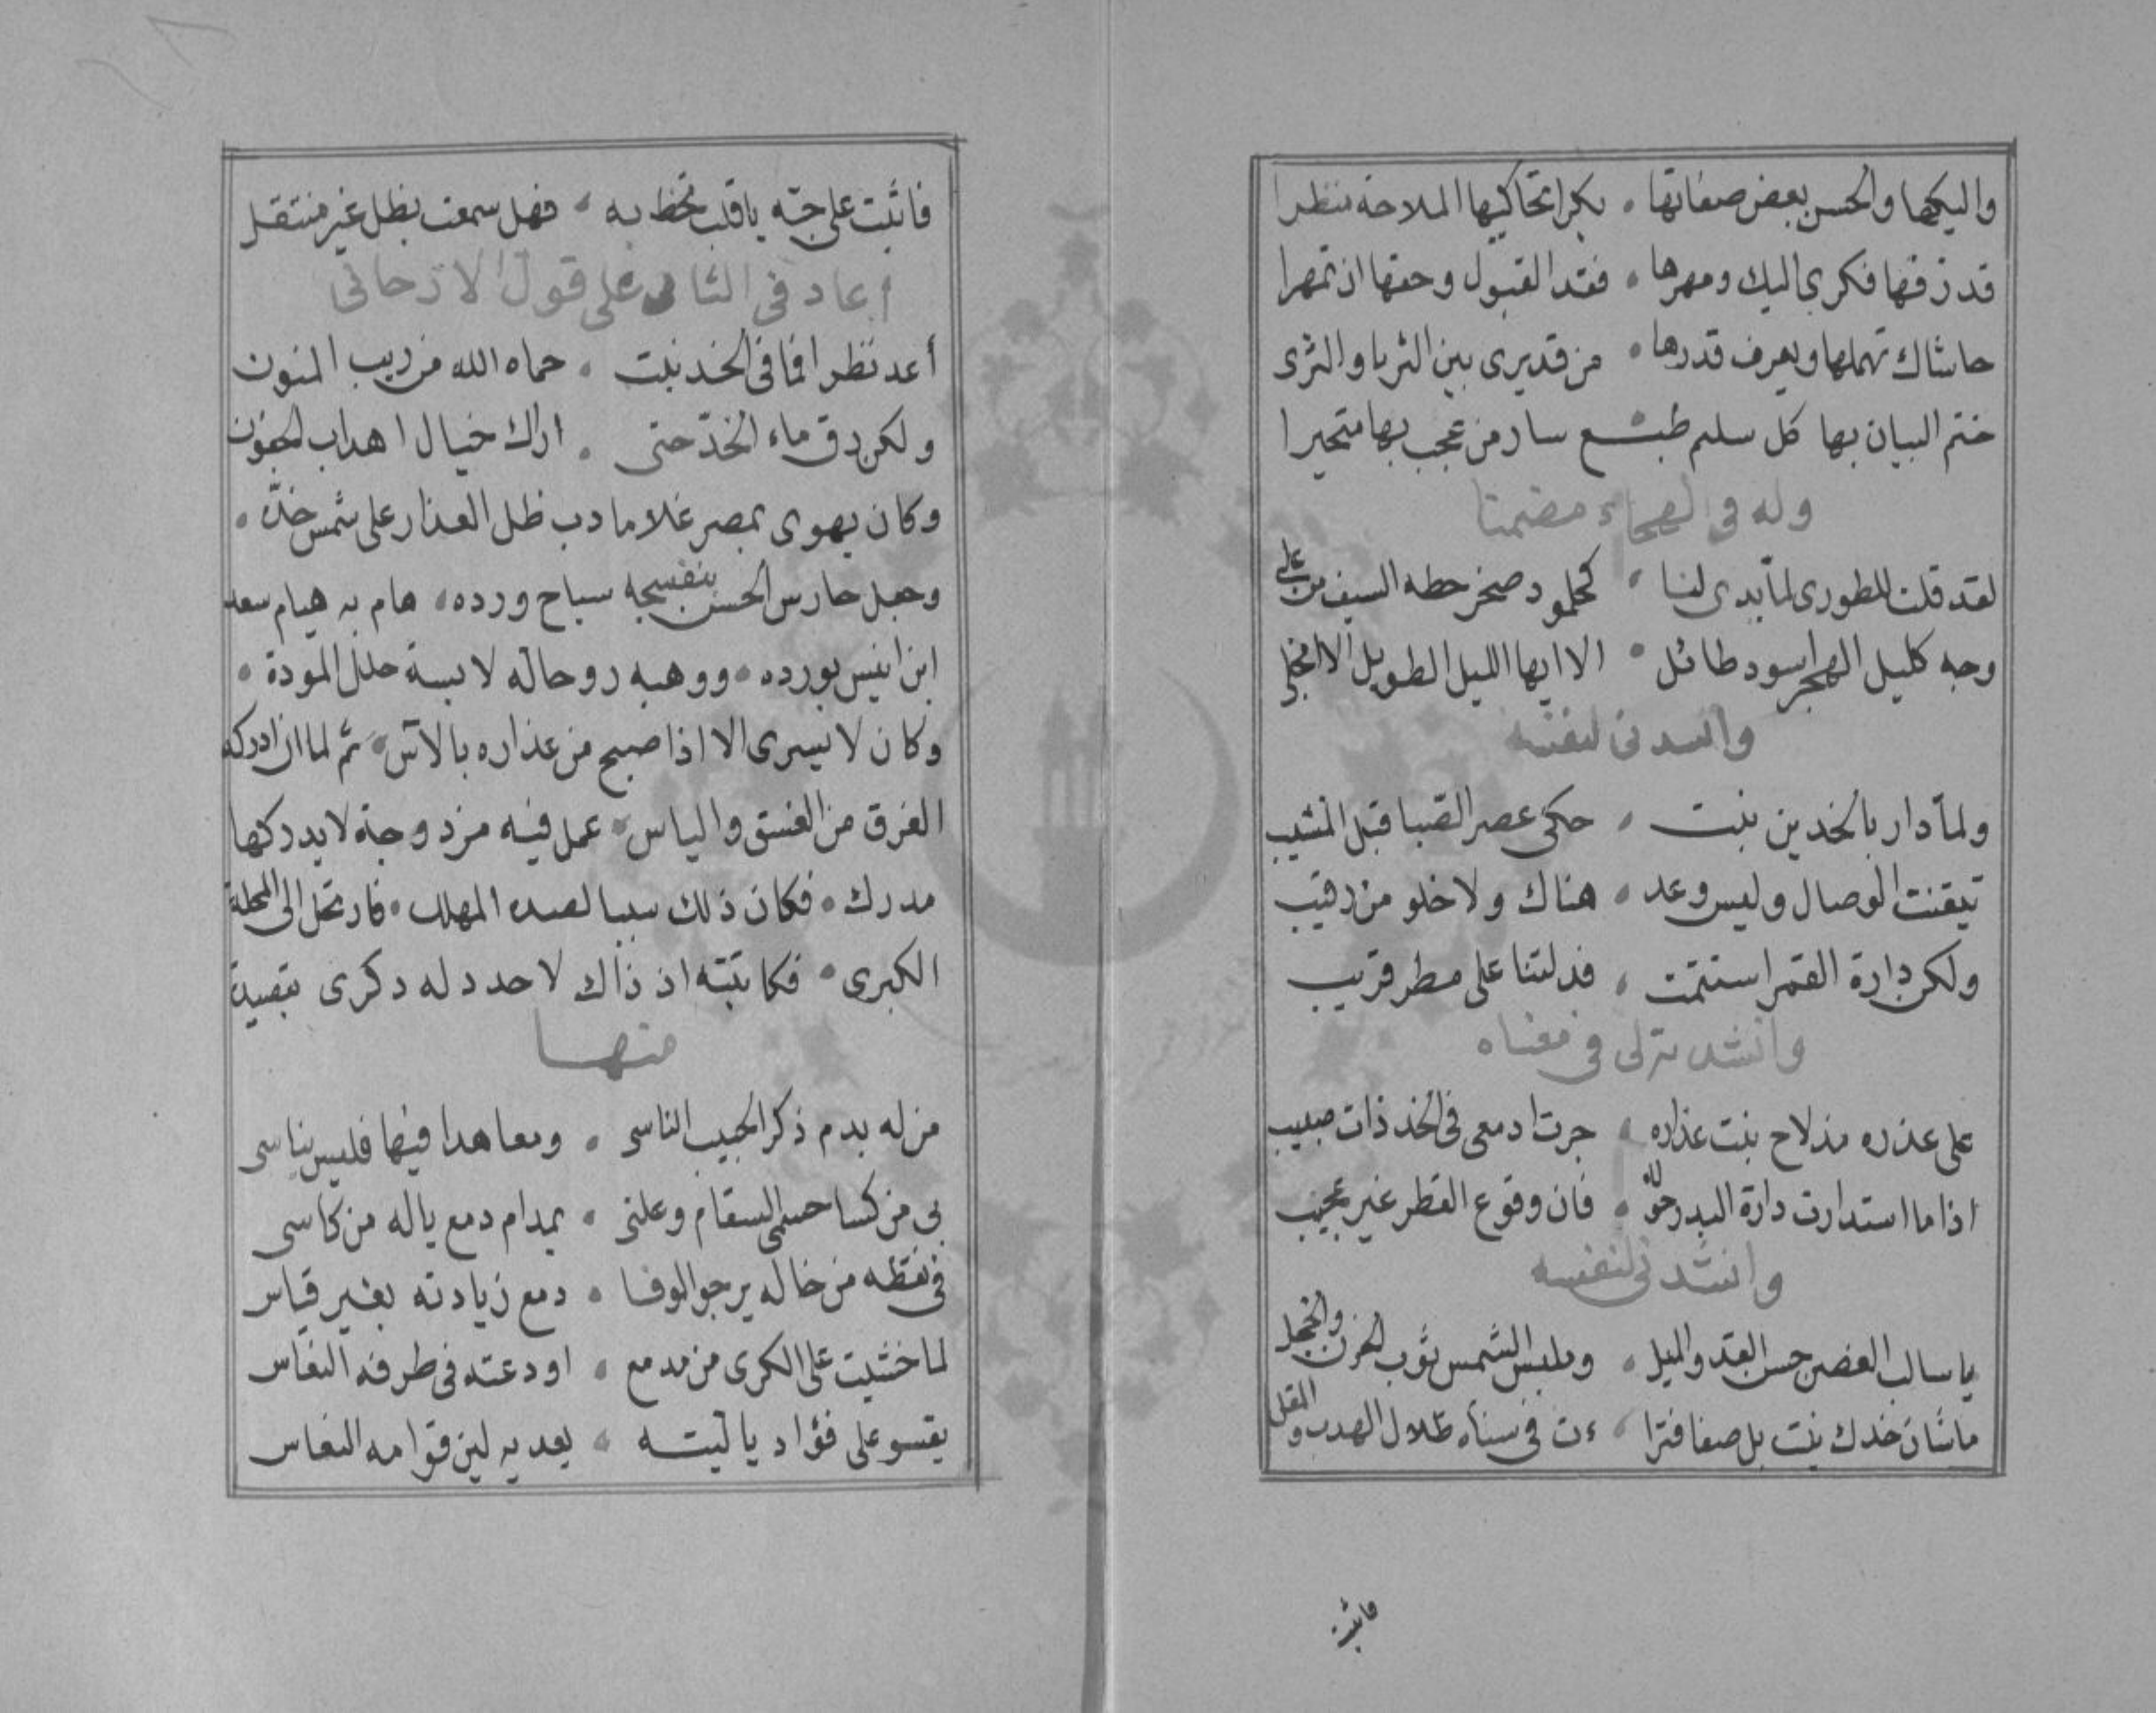 واليكها والحسن بعض صفاتها ، بكرا تحاكيها الملاحة منظرا
قد زفها فكرى اليك ومهرها ، فقد القبول وحقها ان تمهرا
حاشاك تهملها ويعرف قدرها ، من قد يرى بين الثريا والثرى
ختم البيان بها كل سليم طبع سار من عجب بها متحيرا
وله فى الهجاء مضمنا
لقد قلت للطورى لما بدى لنا ، كجلمود صخر حطه السيف من على
وجه كليل الهجر اسود طائل ، الا ايها الليل الطويل الا انجلى
وانشدنى لنفسه
ولما دار بالخدين نبت ، حكى عصر الصبا قبل المشيب
تيقنت الوصال وليس وعد ، هناك ولا خلو من رقيب
ولكن دارة القمر استتمت ، فدلتنا على مطر قريب
وانشد لى فى معناه
على عذره مذ لاح نبت عذاره ، جرت ادمعى فى الخد ذات صبيب
اذا ما استدارت دارة البدر حوله ، فان وقوع القطر غير عجيب
وانشدنى لنفسه
يا سالب الغصن حسن القد والميل ، وملبس الشمس ثوب الحزن والخجل
ما شان خدك نبت بل صفا فترا ، ءت فى سناه ظلال الهدب والمقل
فاثبت
فاثبت على حبه يا قلب تحظ به ، فهل سمعت بظل غير منتقل
أعاد فى الثانى على قول الارجانى
أعد نظرا فما فى الخد نبت ، حماه الله من ريب المنون
ولكن رق ماء الخد حتى ، اراك خيال اهداب الجفون
وكان يهوى بمصر غلاما دب ظل العذار على شمس خده ،
وجعل حارس الحسن بنفسجه سياج ورده ، هام به هيام سعد
ابن انيس بورده ، ووهبه روحا له لابسة حلل المودة ،
وكان لا يسرى الا اذا صبح من عذاره بالآس ، ثم لما ان ادركه
الغرق من العشق والياس ، عمل فيه مزدوجة لا يدركها
مدرك ، فكان ذلك سببا لصده المهلك ، فارتحل الى المحلة
الكبرى ، فكاتبته اذ ذاك لاجدد له ذكرى بقصيدة
منها
من له بدم ذكر الحبيب الناسى ، ومعاهدا فيها فليس بناسى
بى من كسا جسمى السقام وعلنى ، بمدام دمع ياله من كاسى
فى نقطه من خاله يرجو الوفا ، دمع زيادته بغير قياس
لما خشيت على الكرى من مدمع ، اودعته فى طرفه النعاس
يقسو على فؤاد يا ليته ، يعديه لين قوامه النعاس